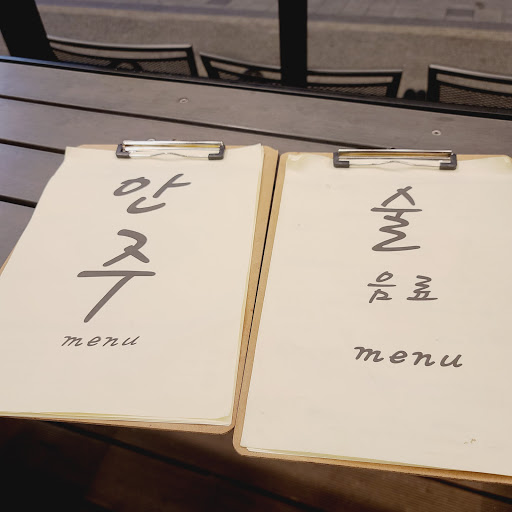 안
주
menu
술
음료
menu